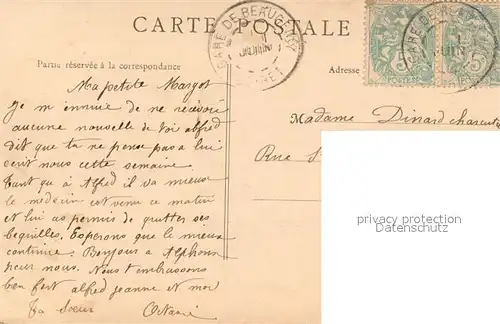 CARTE POSTALE
GARE DE BEAUGENCY
GARE DE BEAU
JUIN
Partie réservée à la correspondance
Adresse
POSTES
Ma petite Margot
Je m ennuie de ne recevoir
aucune nouvelle de toi alfred
dit que tu ne pense pas a lui
ecrit nous cette semaine
Tant qu à Alfred il va mieux
le medecin est venue ce matin
et lui as permis de quitter ses
bequilles. Esperons que le mieux
continura. Bonjour a Alphonse
pour nous. Nous t embrassons
ben fort alfred jeanne et moi
Ta Soeur
Madame Dinard charcuti
Rue
privacy protection
Datenschutz